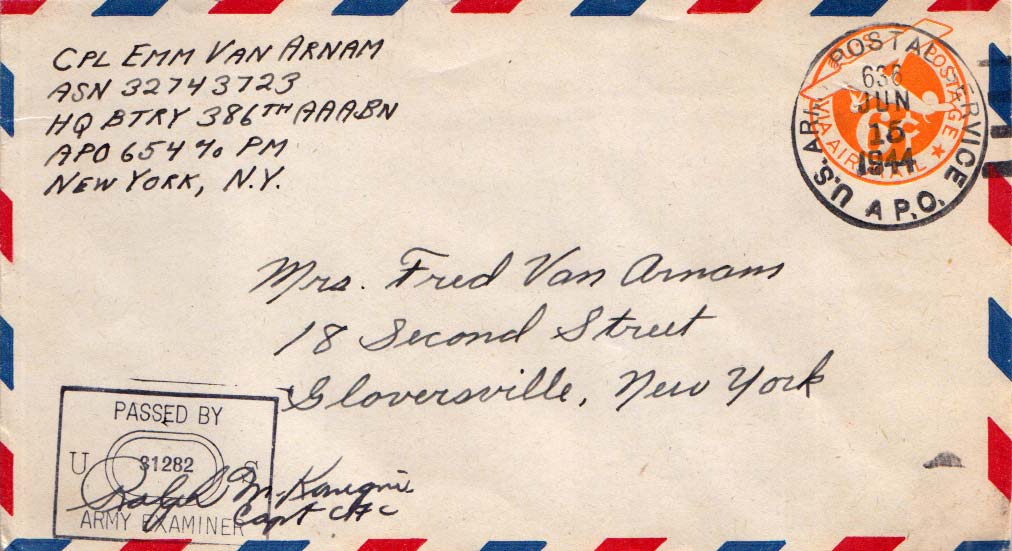 CPL EMM VAN ARNAM
ASN 32743723
HQ BTRY 386TH AAABN
APO 654 % PM
NEW YORK, N.Y.
U.S. ARMY POSTAL SERVICE
A.P.O.
636
JUN
15
1944
POSTAGE
6¢
VIA AIR MAIL
Mrs. Fred Van Arnam
18 Second Street
Gloversville, New York
PASSED BY
U 31282 S
ARMY EXAMINER
Ralph M.
Capt